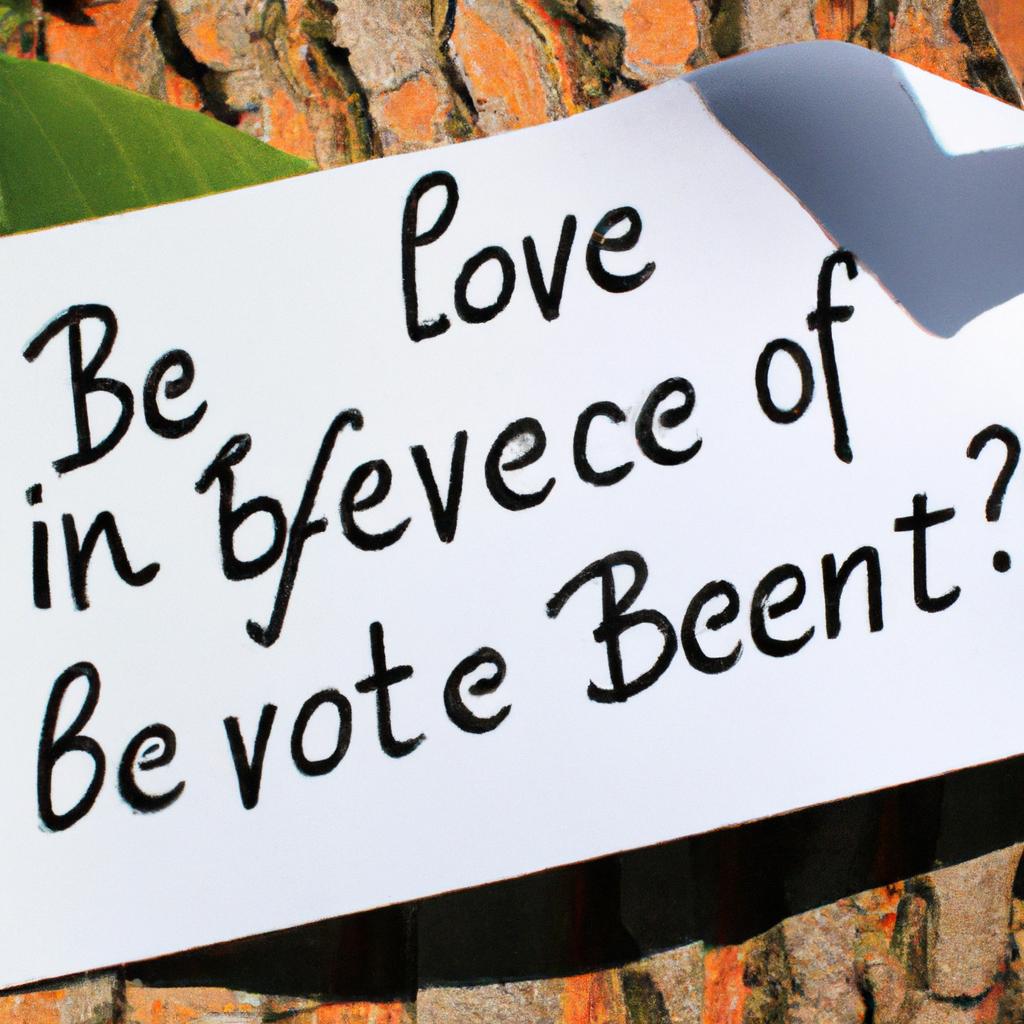 Love
Be
in bfevece of
Be vote Beent?